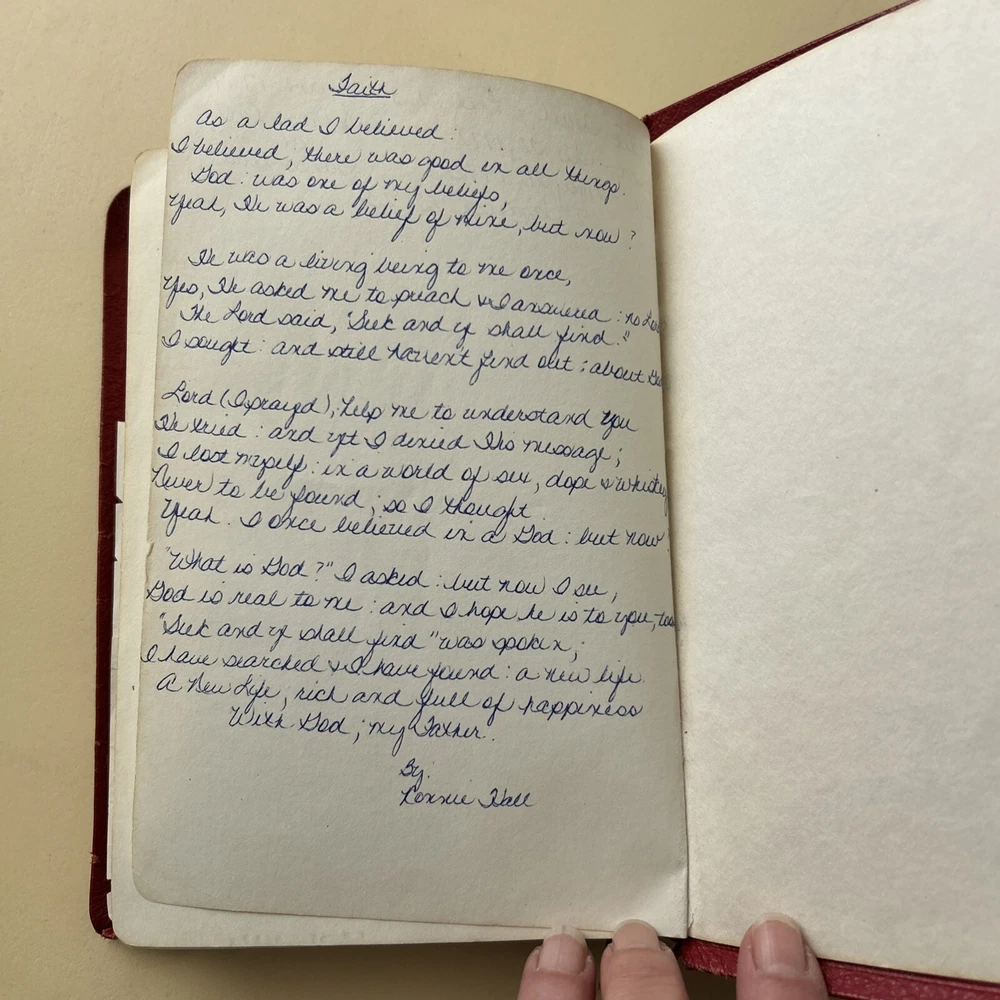 Faith
As a lad I believed:
I believed; there was good in all things.
God: was one of my beliefs,
Yeah, He was a belief of mine, but now?
He was a living being to me once,
Yes, He asked me to preach & I answered: no
The Lord said, "Seek and ye shall find."
I sought: and still haven't find out; about
Lord (I prayed), help me to understand you
He tried: and yet I denied His message;
I lost myself: in a world of sex, dope & whiskey
Never to be found; so I thought.
Yeah. I once believed in a God: but now
"What is God?" I asked: but now I see,
God is real to me: and I hope he is to you, too
"Seek and ye shall find" was spoken;
I have searched & I have found: a new life.
A New Life, rich and full of happiness
With God; my Father.
By:
Lonnie Hall